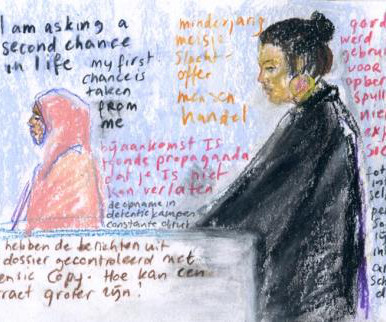 I am asking a
second chance
in life
my first
chance is
taken
from
me
minderjarig
meisje
slacht-
offer
mensen
handel
bij aankomst IS
tonde propaganda
dat je IS niet
kan verlaten
de opname in
detentie kampen
constante onrust
hebben de berichten uit
dossier gecontroleerd met
ensic Copy. Hoe kan een
ract groter zijn!
gord
werd
gebrui
voor
opber
spull
nie
ex
so
fot